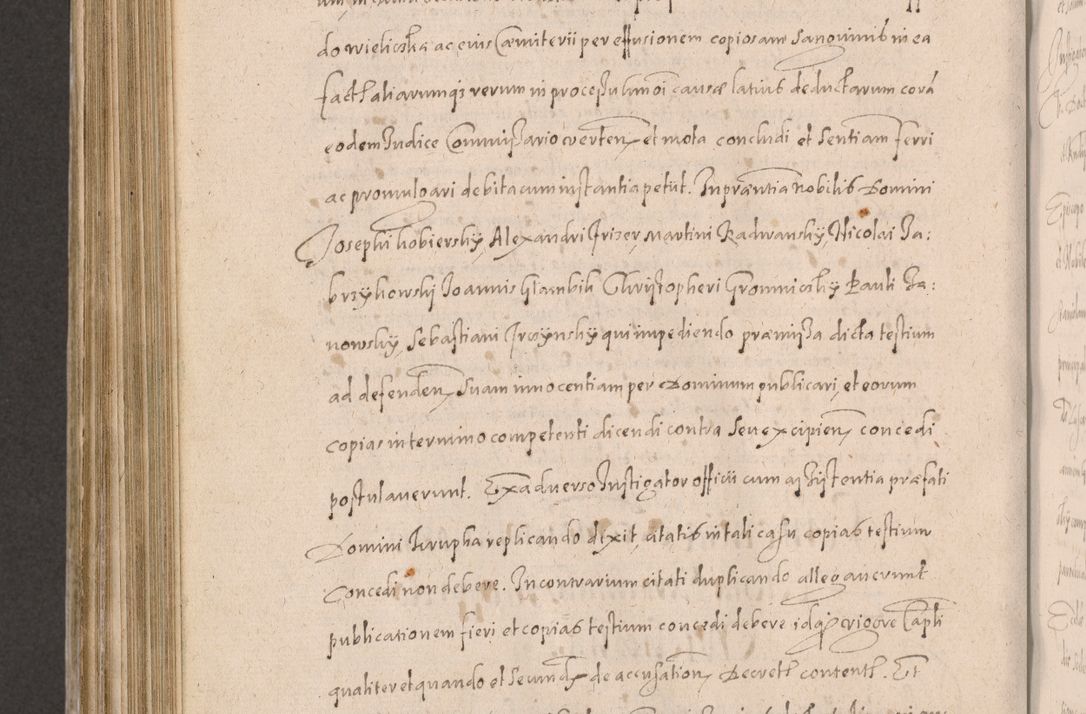 do Wieliczka ac eius Cæmiterii per effusionem copiosam Sanguinis in ea
fact aliarumq3 rerum in processu hmõi causæ latius deductarum corã
eodem Iudice Commissario verten et mota concludi et Sentiam ferri
ac promulgari debita cum instantia petiit. In præntia Nobilis Domini
Iosephi Kobiersky, Alexandri Irizer, Martini Radwansky, Nicolai Za:
brzykowskÿ Ioannis Giambik Christophori Gromniczky Pauli Ja:
nowsky, Sebastiani Irczynsky qui impediendo præmissa dicta testium
ad defenden Suam innocentiam per Dominum publicari, et eorum
copias in termino competenti dicendi contra seu excipien concedi
postulaverunt. Ex adverso Instigator officii cum assistentia præfati
Domini Krupka replicando dixit, citatis in tali casu copias testium
Concedi non debere. In contrarium citati duplicando allegaverunt
publicationem fieri et copias testium concedi debere idq3 vigore Capli
qualiter et quando et Secund de accusation Decret content. Et